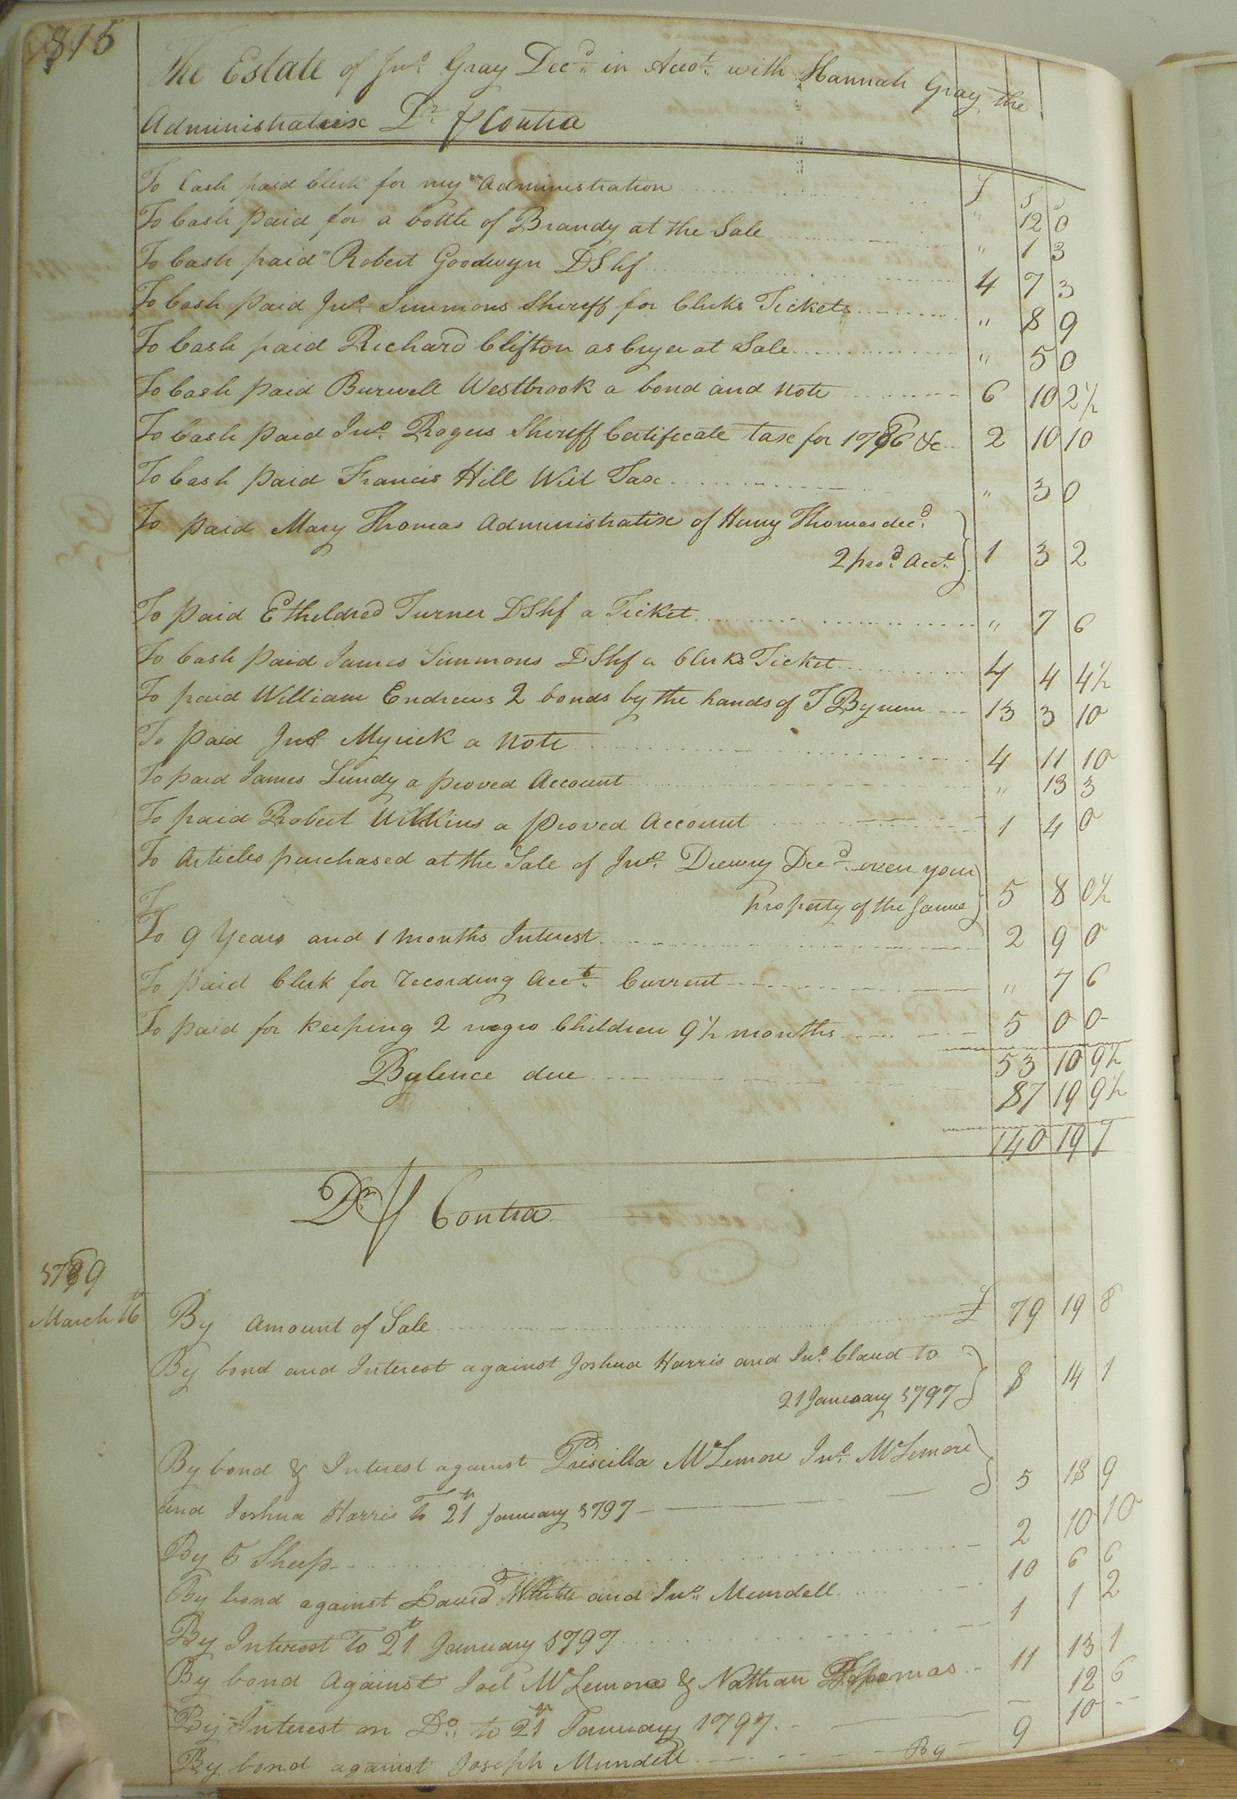 815
The Estate of Jno. Gray Decd. in Accot. with Hannah Gray the
Administratrix Dr. pr Contra
£ S
To Cash paid Clerk for my Administration " 12 0
To Cash paid for a bottle of Brandy at the Sale " 1 3
To Cash paid Robert Goodwyn D Shf 4 7 3
To Cash paid Jno. Simmons Sheriff for Clerks Tickets " 8 9
To Cash paid Richard Clifton as Cryer at Sale " 5 0
To Cash paid Burwell Westbrook a bond and note 6 10 2½
To Cash paid Jno. Rogers Sheriff Certificate tax for 1786 &c 2 10 10
To Cash paid Francis Hill Will Tax " 3 0
To paid Mary Thomas Administratrix of Henry Thomas decd.
2 provd. Acct. 1 3 2
To paid Etheldred Turner D Shf a Ticket " 7 6
To Cash paid James Simmons D Shf a Clerks Ticket 4 4 4½
To paid William Endrews 2 bonds by the hands of T Bynum 13 3 10
To paid Jno. Myrick a Note 4 11 10
To paid James Lundy a proved Account " 13 3
To paid Robert Wilkins a proved Account 1 4 0
To Articles purchased at the Sale of Jno. Drewry Decd. over your
property of the same 5 8 0½
To
To 9 Years and 1 months Interest 2 9 0
To paid Clerk for recording Acct. Current " 7 6
To paid for keeping 2 negro Children 9½ months 5 0 0
53 10 9½
Balence due 87 19 9½
140 19 7
Dr. pr Contra
1789
March 16 By amount of Sale £ 79 19 8
By bond and Interest against Joshua Harris and Jno. Claud to
21 January 1797 8 14 1
By bond & Interest against Priscilla McLemore Jno. McLemore
and Joshua Harris to 21st January 1797 5 18 9
By 5 Sheep 2 10 10
By bond against David and Jno. Mundell 10 6 6
By Interest to 21st January 1797 1 1 2
By bond Against Joel McLemore & Nathan Thomas 11 13 1
By Interest on Do. to 21st January 1797 12 6
By bond against Joseph Mundell 9 10
By